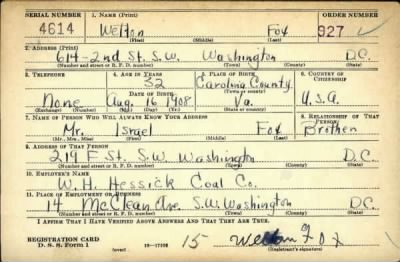 SERIAL NUMBER 1. NAME (Print) ORDER NUMBER
4614 Welton Fox 927
(First) (Middle) (Last)
2. ADDRESS (Print)
614-2nd St. S.W. Washington D.C.
(Number and street or R. F. D. number) (Town) (County) (State)
3. TELEPHONE 4. AGE IN YEARS 5. PLACE OF BIRTH 6. COUNTRY OF CITIZENSHIP
32 Carolina County
DATE OF BIRTH (Town or county)
None Aug. 16 1908. Va. U.S.A.
(Exchange) (Number) (Mo.) (Day) (Yr.) (State or country)
7. NAME OF PERSON WHO WILL ALWAYS KNOW YOUR ADDRESS 8. RELATIONSHIP OF THAT PERSON
Mr. Israel Fox Brother
(Mr., Mrs., Miss) (First) (Middle) (Last)
9. ADDRESS OF THAT PERSON
219 F St. S.W. Washington D.C.
(Number and street or R. F. D. number) (Town) (County) (State)
10. EMPLOYER'S NAME
W. H. Hessick Coal Co.
11. PLACE OF EMPLOYMENT OR BUSINESS
14 McClean Ave. S.W. Washington D.C.
(Number and street or R. F. D. number) (Town) (County) (State)
I AFFIRM THAT I HAVE VERIFIED ABOVE ANSWERS AND THAT THEY ARE TRUE.
REGISTRATION CARD
D. S. S. Form 1 (over) 15 Welton Fox
(Registrant's signature)